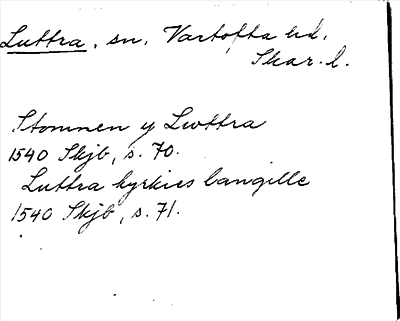 Luttra, sn. Vartofta hd.
Skar. l.
Stommen y Lwttra
1540 Skjb, s. 70.
Luttra kyrkies langille
1540 Skjb, s. 71.